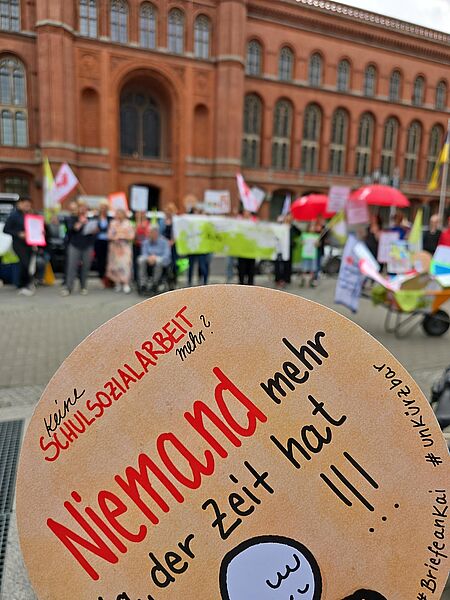 keine
SCHULSOZIALARBEIT
mehr?
Niemand mehr
der Zeit hat
!!!
...
#unkürzbar
#BriefeanKai